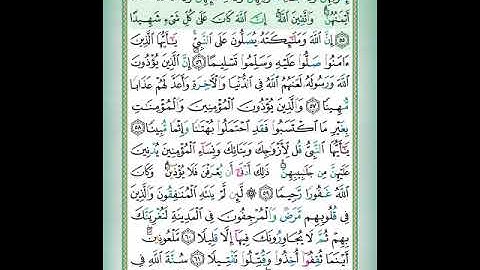 أَيْمَٰنُهُنَّ ۗ وَٱتَّقِينَ ٱللَّهَ ۚ إِنَّ ٱللَّهَ كَانَ عَلَىٰ كُلِّ شَىْءٍ شَهِيدًا
﴿٥٥﴾ إِنَّ ٱللَّهَ وَمَلَٰٓئِكَتَهُۥ يُصَلُّونَ عَلَى ٱلنَّبِىِّ ۚ يَٰٓأَيُّهَا ٱلَّذِينَ
ءَامَنُوا۟ صَلُّوا۟ عَلَيْهِ وَسَلِّمُوا۟ تَسْلِيمًا ﴿٥٦﴾ إِنَّ ٱلَّذِينَ يُؤْذُونَ
ٱللَّهَ وَرَسُولَهُۥ لَعَنَهُمُ ٱللَّهُ فِى ٱلدُّنْيَا وَٱلْءَاخِرَةِ وَأَعَدَّ لَهُمْ عَذَابًا
مُّهِينًا ﴿٥٧﴾ وَٱلَّذِينَ يُؤْذُونَ ٱلْمُؤْمِنِينَ وَٱلْمُؤْمِنَٰتِ
بِغَيْرِ مَا ٱكْتَسَبُوا۟ فَقَدِ ٱحْتَمَلُوا۟ بُهْتَٰنًا وَإِثْمًا مُّبِينًا ﴿٥٨﴾
يَٰٓأَيُّهَا ٱلنَّبِىُّ قُل لِّأَزْوَٰجِكَ وَبَنَاتِكَ وَنِسَآءِ ٱلْمُؤْمِنِينَ يُدْنِينَ
عَلَيْهِنَّ مِن جَلَٰبِيبِهِنَّ ۚ ذَٰلِكَ أَدْنَىٰٓ أَن يُعْرَفْنَ فَلَا يُؤْذَيْنَ ۗ وَكَانَ
ٱللَّهُ غَفُورًا رَّحِيمًا ﴿٥٩﴾ لَّئِن لَّمْ يَنتَهِ ٱلْمُنَٰفِقُونَ وَٱلَّذِينَ
فِى قُلُوبِهِم مَّرَضٌ وَٱلْمُرْجِفُونَ فِى ٱلْمَدِينَةِ لَنُغْرِيَنَّكَ
بِهِمْ ثُمَّ لَا يُجَاوِرُونَكَ فِيهَآ إِلَّا قَلِيلًا ﴿٦٠﴾ مَّلْعُونِينَ ۖ
أَيْنَمَا ثُقِفُوٓا۟ أُخِذُوا۟ وَقُتِّلُوا۟ تَقْتِيلًا ﴿٦١﴾ سُنَّةَ ٱللَّهِ فِى